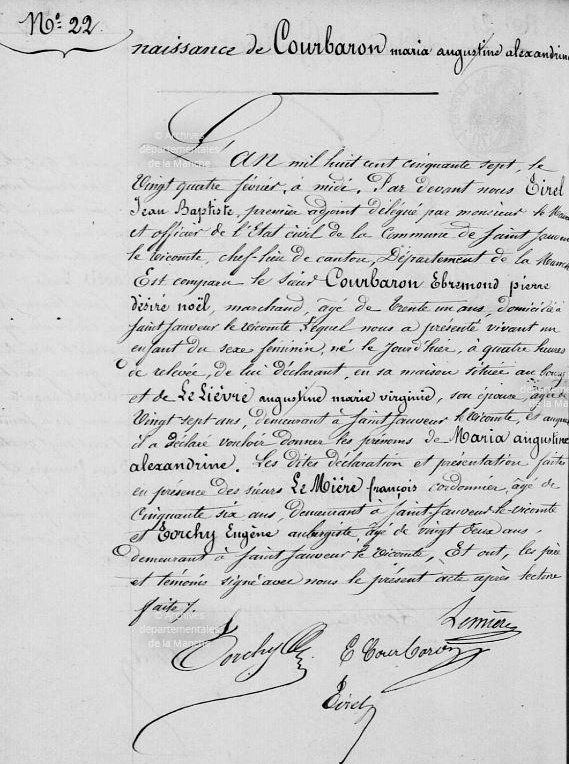 N.º 22
naissance de Courbaron maria augustine alexandrine
L'an mil huit cent cinquante sept, le
Vingt quatre février, à midi, Par devant nous Tirel
Jean Baptiste, premier adjoint délégué par monsieur le Maire
et officier de l'Etat civil de la Commune de Saint Sauveur
le vicomte, chef-lieu de canton, Département de la Manche
Est comparu le Sieur Courbaron Ebremond pierre
désiré noël, marchand, âgé de trente un ans, domicilié à
Saint Sauveur le vicomte Lequel nous a présenté vivant un
enfant du sexe féminin, né le Jour d'hier, à quatre heures
de relevée, de lui déclarant, en sa maison située au bourg
et de Le Lièvre augustine marie virginie, son épouse, âgée de
Vingt sept ans, demeurant à Saint Sauveur le vicomte, et auquel
il a déclaré vouloir donner les prénoms de Maria augustine
alexandrine. Les dites déclaration et présentation faites
en présence des sieurs Le Mière françois cordonnier, âgé de
Cinquante six ans, demeurant à Saint-Sauveur-le-vicomte
et Torchy Eugène aubergiste, âgé de vingt deux ans
demeurant à Saint Sauveur le vicomte, Et ont, les père
et témoins signé avec nous le présent acte après lecture
faite.
Lemière
Torchy E Courbaron
Tirel
© Archives
départementales
de la Manche
© Archives
départementales
de la Manche